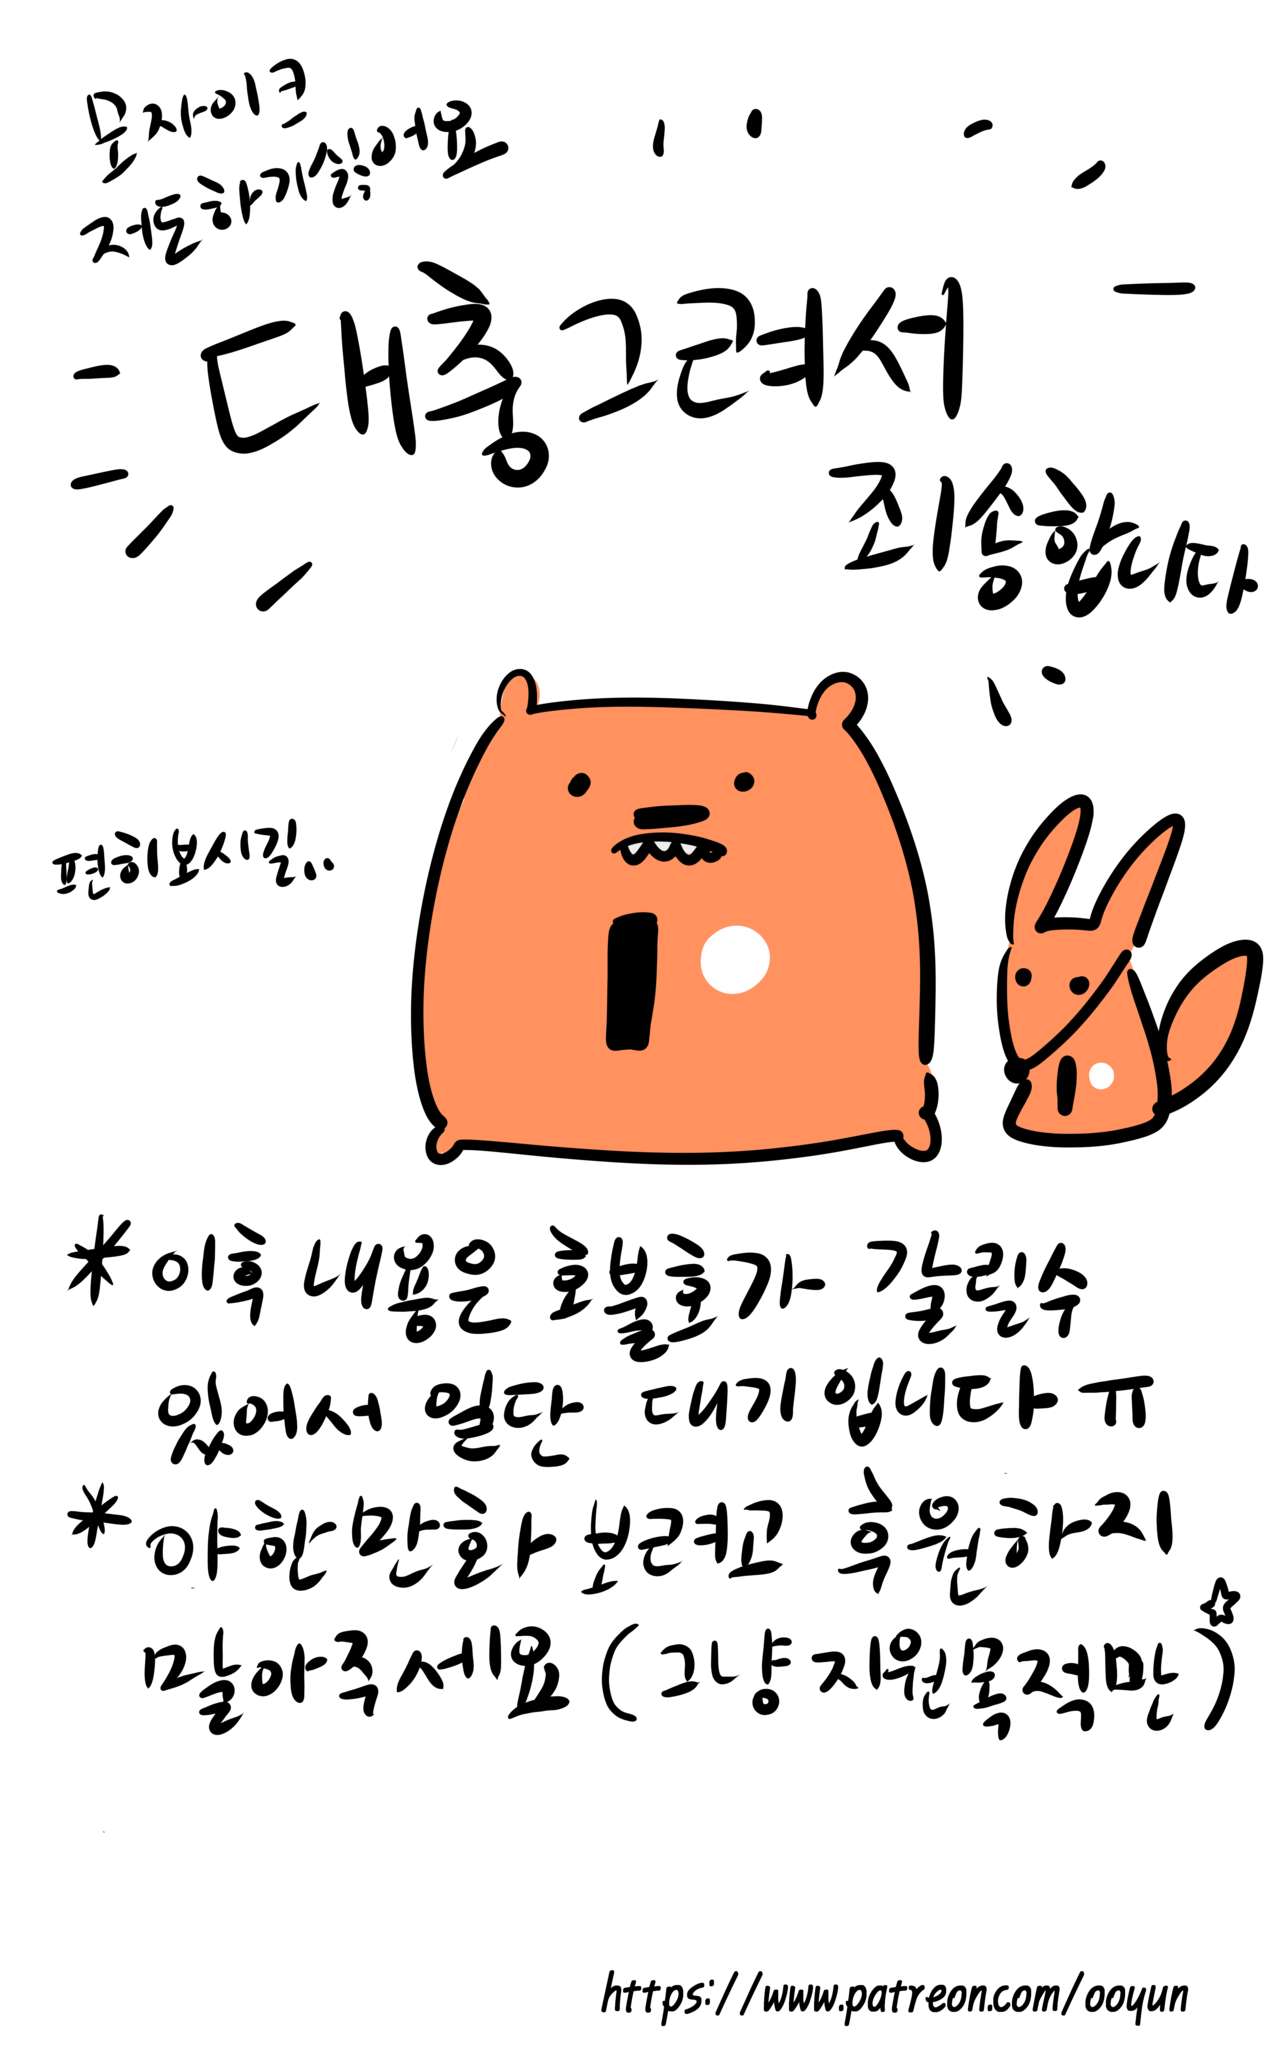 모자이크
저도하기싫어요
대충그려서
죄송합니다
편히보시길..
*이후 내용은 호불호가 갈릴수
있어서 일단 대기입니다ㅠ
*야한만화 보려고 후원하지
말아주세요(그냥지원목적만)☆
https://www.patreon.com/ooyun